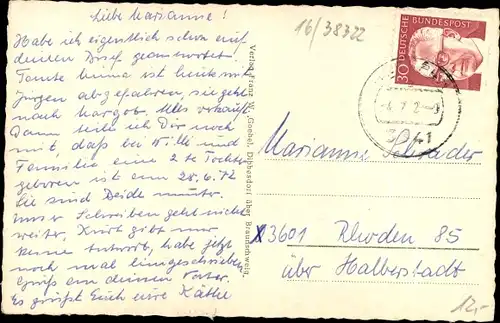 Liebe Marianne!
Habe ich eigentlich schon auf
deinen Brief geantwortet.
Tante Emma ist heute mit
Jürgen abgefahren, sie geht
nach Margot. Alles verkauft.
Dann teile ich Dir noch
mit, daß bei Willi und
Familie eine 2te Tochter
geboren ist am 28.6.72
Sie sind Beide munter.
Unser Schreiben geht nicht
weiter, Kurt gibt mir
keine Antwort, habe jetzt
noch mal eingeschrieben
Gruß an deinen Vater.
Es grüßt Euch eure Käthe
Verlag Franz W. Goebel, Dibbesdorf über Braunschweig.
16/38322
30 DEUTSCHE BUNDESPOST
Marianne Schrader
3601 Rhoden 85
über Halberstadt
12,-